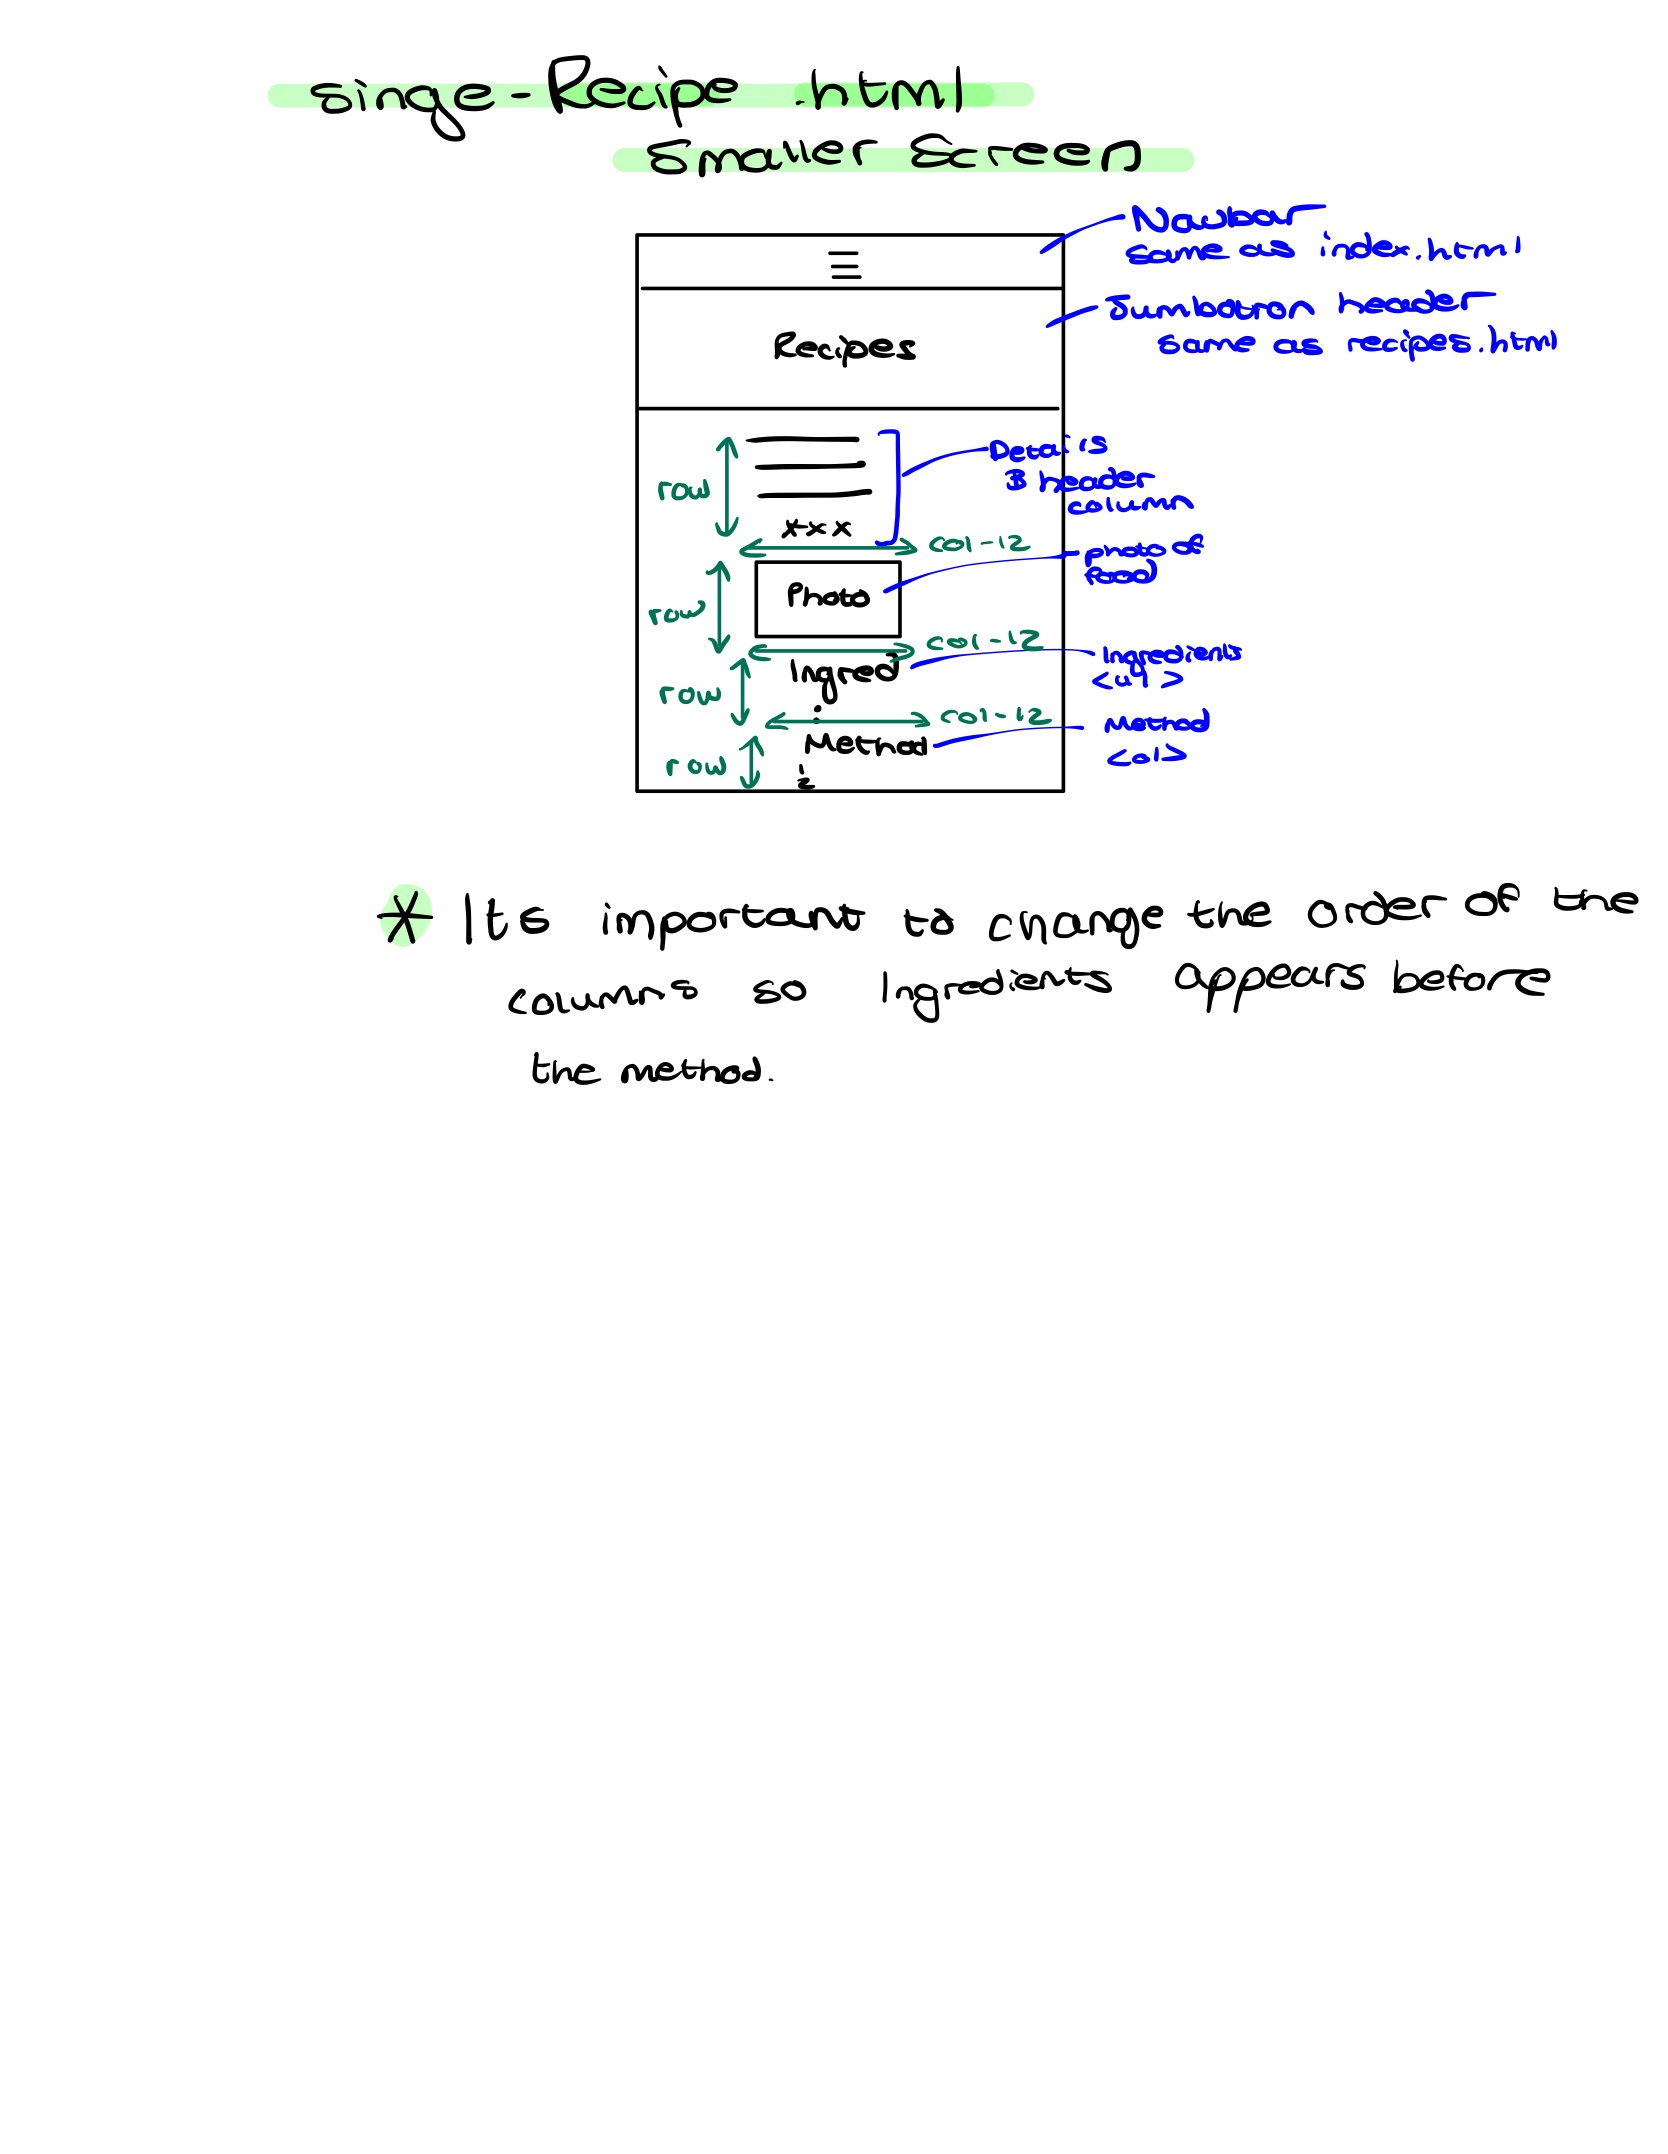 singe-Recipe.html
Smaller Screen
Navbar
same as index.html
Jumbotron header
same as recipes.html
Recipes
Details
& header
column
row
xxx
col-12
photo of
food
Photo
row
col-12
Ingredients
<ul>
Ingred
row
col-12
Method
<ol>
Method
row
1
2
* Its important to change the order of the
columns so Ingredients appears before
the method.